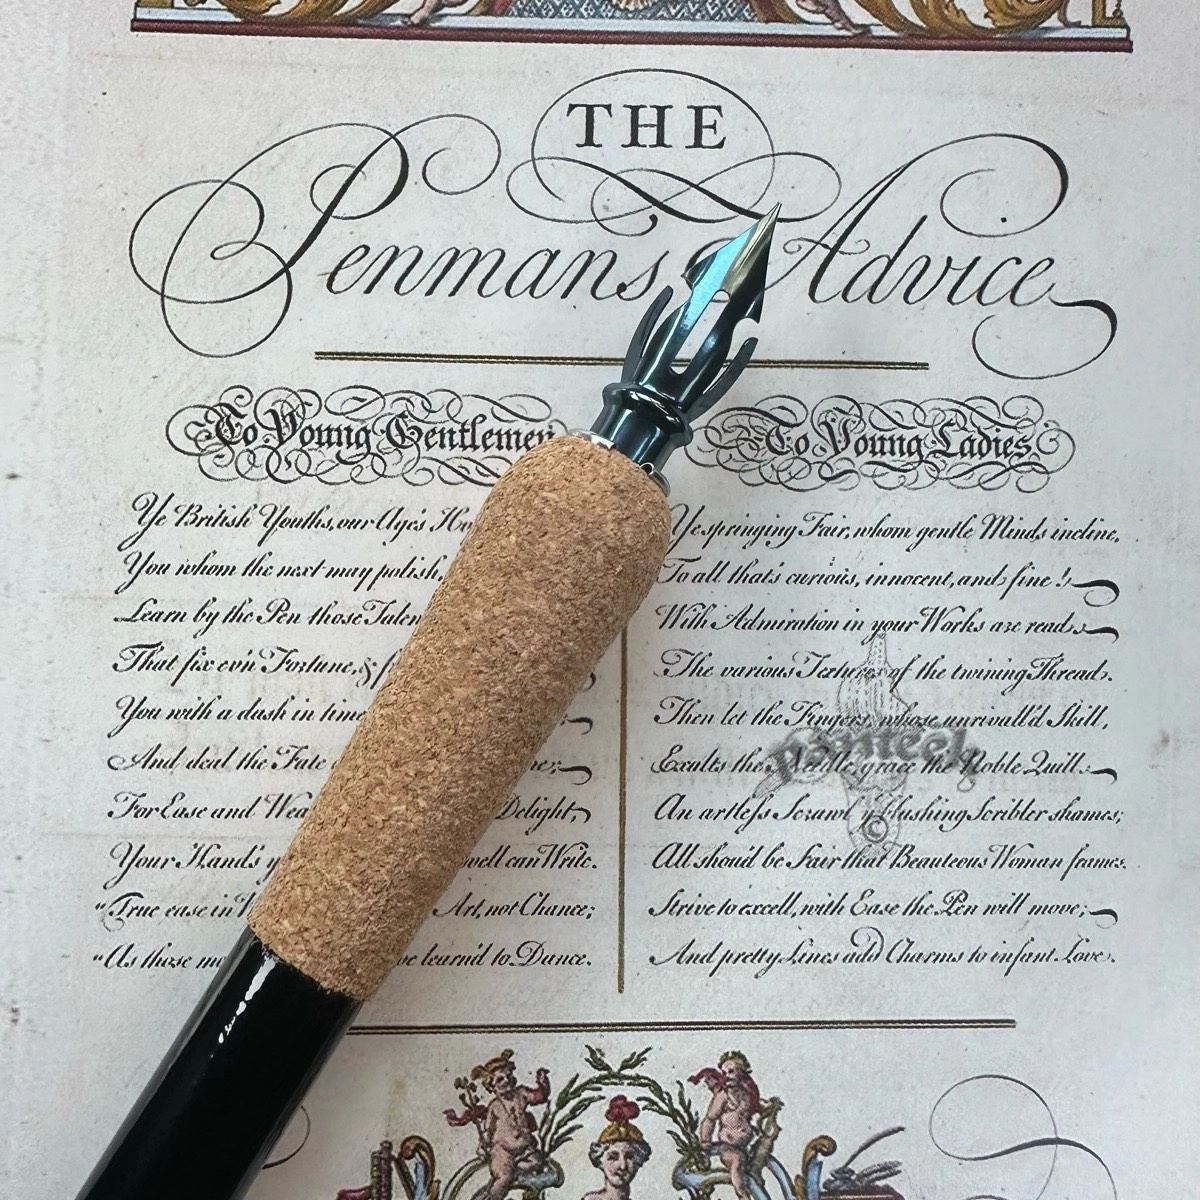 THE
Penmans Advice
To Young Gentlemen
Ye British Youths, our Age's
You whom the next may polish,
Learn by the Pen those
That fix ev'n Fortune, &
You with a dash in time
And deal the Fate
For Ease and Delight,
Your Hand's well can Write.
"True ease in Art, not Chance;
"As those learn'd to Dance.
To Young Ladies.
Ye springing Fair, whom gentle Minds incline,
To all that's curious, innocent, and fine!
With Admiration in your Works are read,
The various Textures of the twining Thread.
Then let the Fingers, whose unrivall'd Skill,
Exalts the Needle, grace the Noble Quill.
An artless Scrawl y.e blushing Scribler shames;
All shou'd be Fair that Beauteous Woman frames.
Strive to excell, with Ease the Pen will move;
And pretty Lines add Charms to infant Love.
©